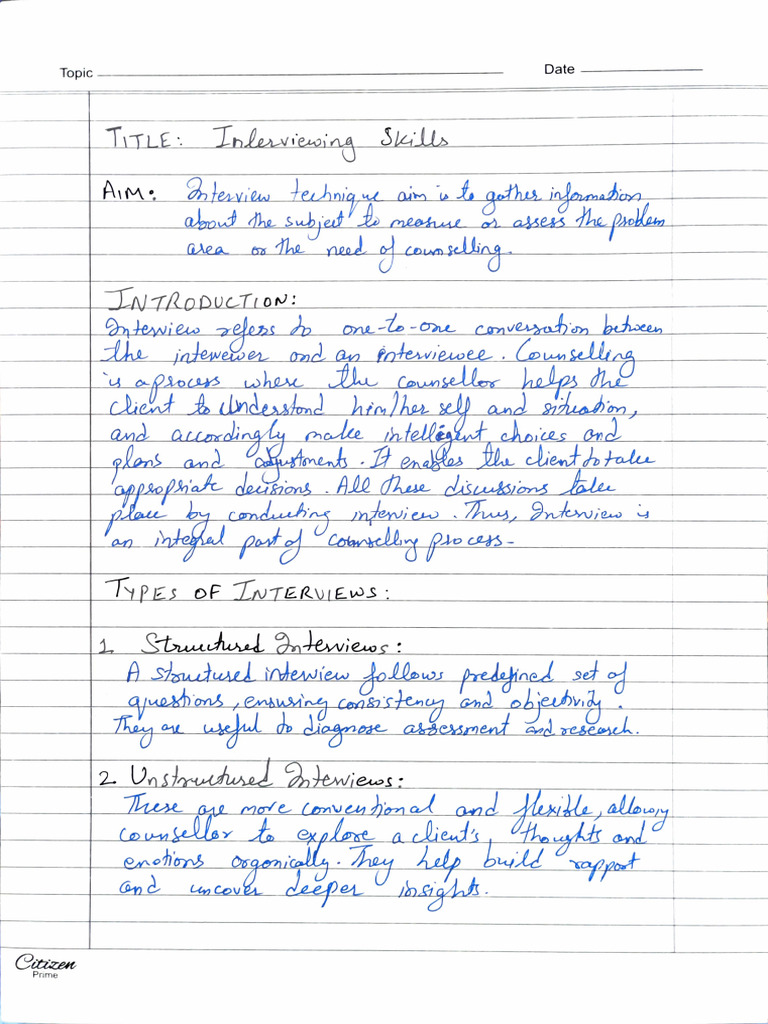 Topic
Date
TITLE: Interviewing Skills
AIM: Interview technique aim is to gather information
about the subject to measure or assess the problem
area or the need of counselling.
INTRODUCTION:
Interview refers to one-to-one conversation between
the intewewer and an interviewee. Counselling
is a process where the counsellor helps the
client to understand him/her self and situation,
and accordingly make intelligent choices and
plans and adjustments. It enables the client to take
appropriate decisions. All these discussions take
place by conducting interview. Thus, Interview is
an integral part of counselling process-
TYPES OF INTERVIEWS:
1. Structured Interviews:
A structured interview follows predefined set of
questions, ensuring consistency and objectivity.
They are useful to diagnose assessment and research.
2. Unstructured Interviews:
These are more conventional and flexible, allowing
counsellor to explore a client's thoughts and
emotions organically. They help build rapport
and uncover deeper insights.
Citizen
Prime